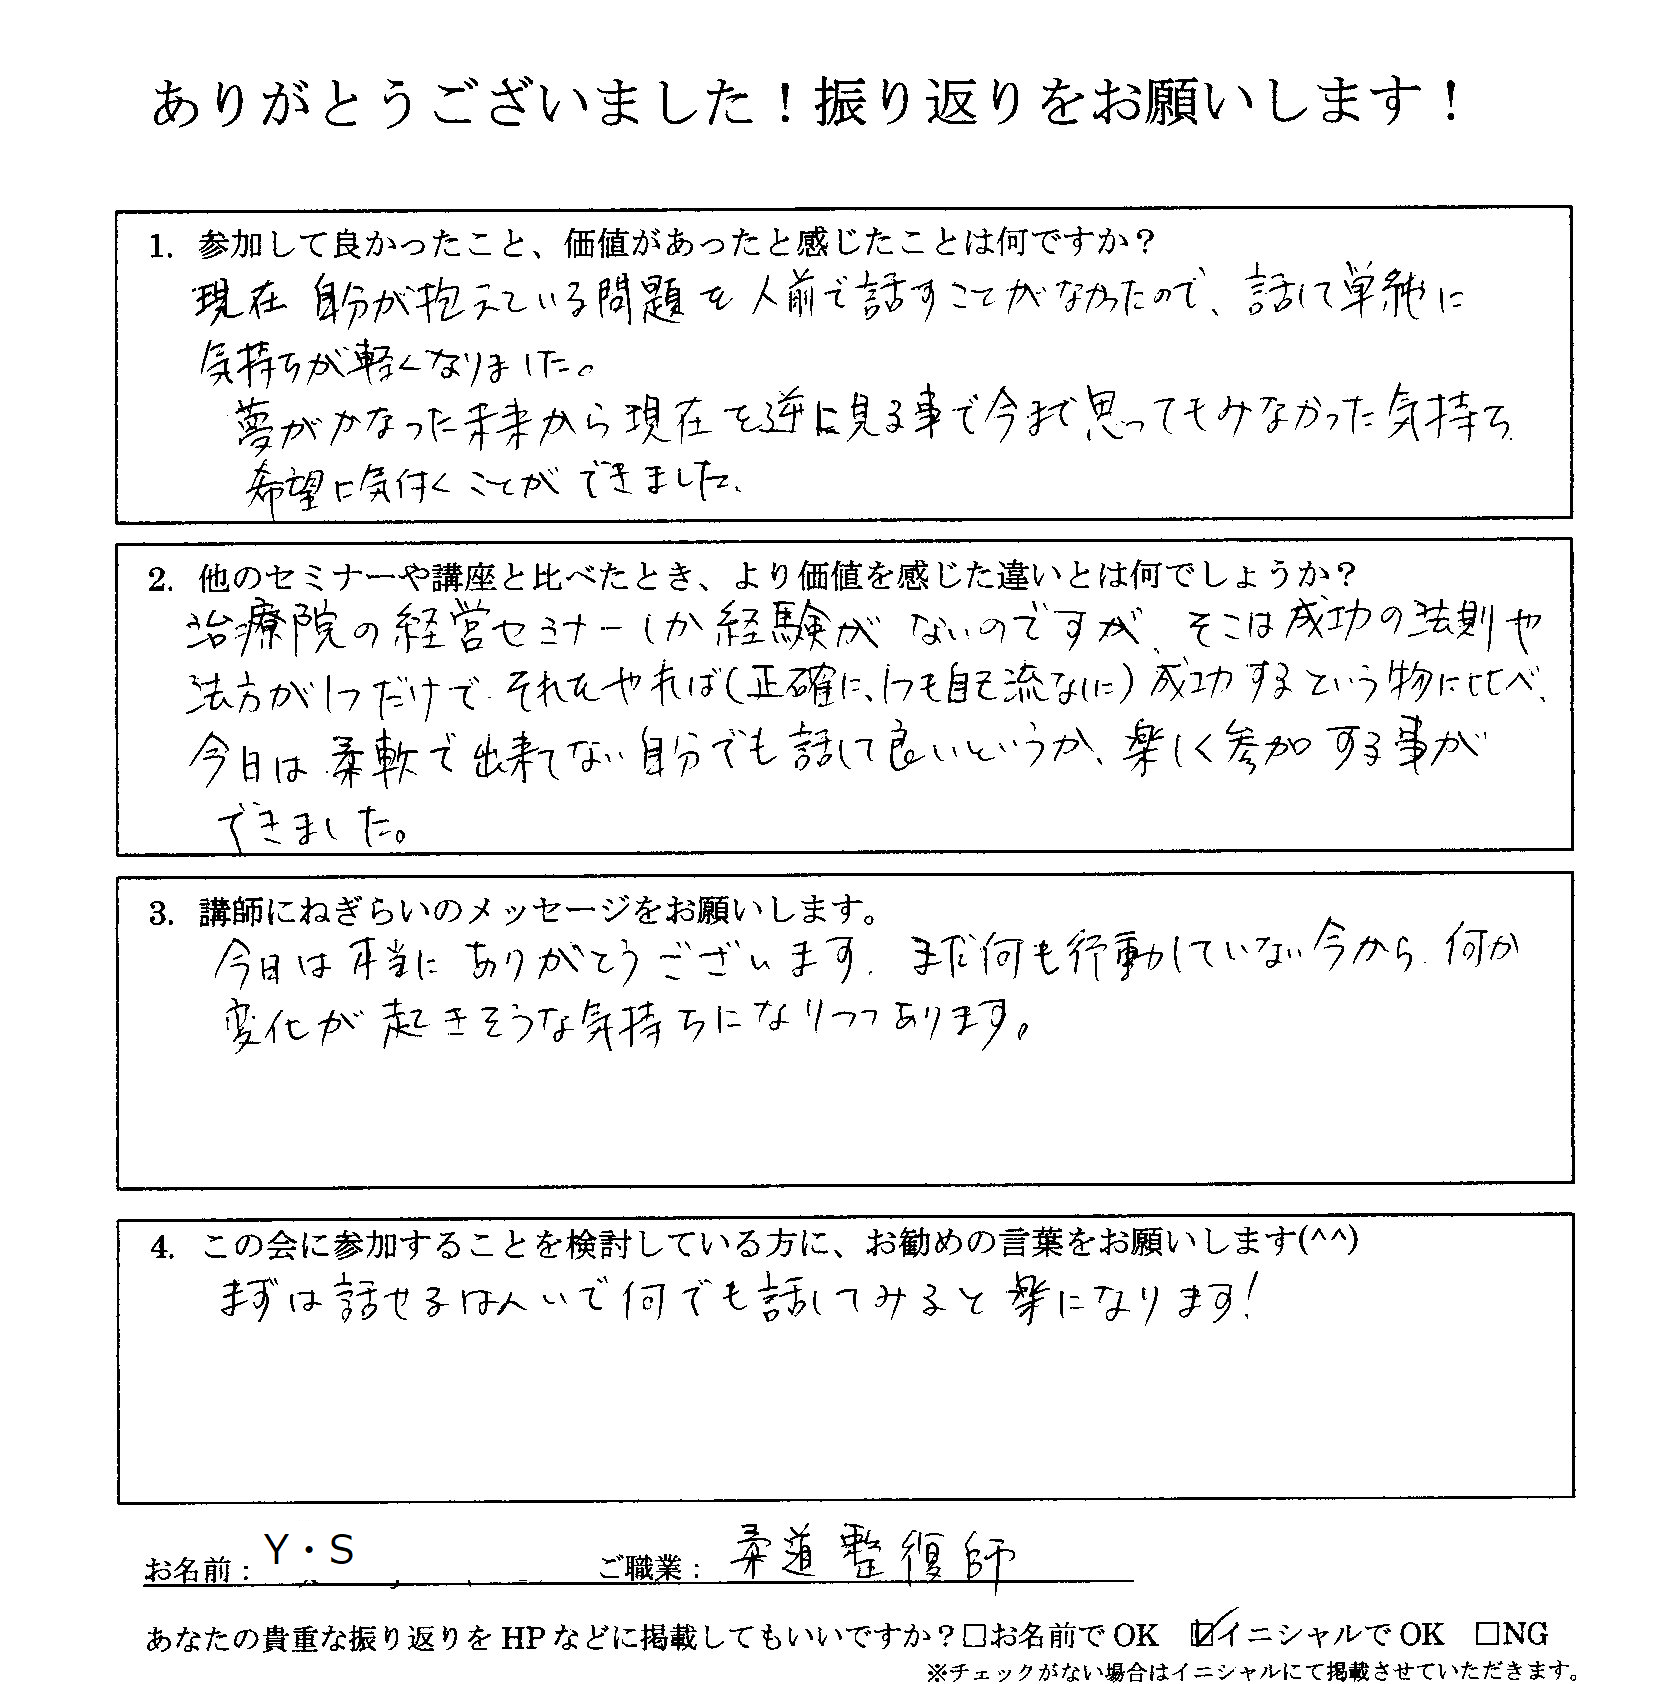 ありがとうございました！振り返りをお願いします！
1. 参加して良かったこと、価値があったと感じたことは何ですか？
現在 自分が抱えている問題を人前で話すことがなかったので、話して単純に
気持ちが軽くなりました。
夢がかなった未来から現在を逆に見る事で今まで思ってもみなかった気持ち
希望に気付くことができました。
2. 他のセミナーや講座と比べたとき、より価値を感じた違いとは何でしょうか？
治療院の経営セミナーしか経験がないのですが、そこは成功の法則や
法方が1つだけで、それをやれば(正確に、1つも自己流なしに)成功するという物に比べ、
今日は柔軟で出来てない自分でも話して良いというか、楽しく参加する事が
できました。
3. 講師にねぎらいのメッセージをお願いします。
今日は本当にありがとうございます。まだ何も行動していない今から、何か
変化が起きそうな気持ちになりつつあります。
4. この会に参加することを検討している方に、お勧めの言葉をお願いします(^^)
まずは話せるはんいで何でも話してみると楽になります！
お名前： Y・S ご職業： 柔道整復師
あなたの貴重な振り返りを HP などに掲載してもいいですか？□お名前で OK ☑イニシャルで OK □NG
※チェックがない場合はイニシャルにて掲載させていただきます。